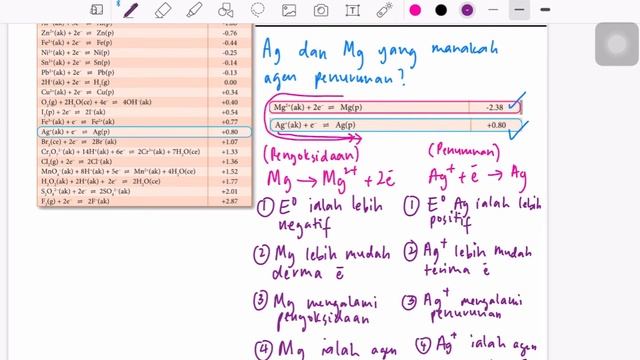 Zn²⁺(ak) + 2e⁻ ⇌ Zn(p) -0.76
Fe²⁺(ak) + 2e⁻ ⇌ Fe(p) -0.44
Ni²⁺(ak) + 2e⁻ ⇌ Ni(p) -0.25
Sn²⁺(ak) + 2e⁻ ⇌ Sn(p) -0.14
Pb²⁺(ak) + 2e⁻ ⇌ Pb(p) -0.13
2H⁺(ak) + 2e⁻ ⇌ H₂(g) 0.00
Cu²⁺(ak) + 2e⁻ ⇌ Cu(p) +0.34
O₂(g) + 2H₂O(ce) + 4e⁻ ⇌ 4OH⁻(ak) +0.40
I₂(p) + 2e⁻ ⇌ 2I⁻(ak) +0.54
Fe³⁺(ak) + e⁻ ⇌ Fe²⁺(ak) +0.77
Ag⁺(ak) + e⁻ ⇌ Ag(p) +0.80
Br₂(ce) + 2e⁻ ⇌ 2Br⁻(ak) +1.07
Cr₂O₇²⁻(ak) + 14H⁺(ak) + 6e⁻ ⇌ 2Cr³⁺(ak) + 7H₂O(ce) +1.33
Cl₂(g) + 2e⁻ ⇌ 2Cl⁻(ak) +1.36
MnO₄⁻(ak) + 8H⁺(ak) + 5e⁻ ⇌ Mn²⁺(ak) + 4H₂O(ce) +1.52
H₂O₂(ak) + 2H⁺(ak) + 2e⁻ ⇌ 2H₂O(ce) +1.77
S₂O₈²⁻(ak) + 2e⁻ ⇌ 2SO₄²⁻(ak) +2.01
F₂(g) + 2e⁻ ⇌ 2F⁻(ak) +2.87
Ag dan Mg yang manakah
agen penurunan?
Mg²⁺(ak) + 2e⁻ ⇌ Mg(p) -2.38
Ag⁺(ak) + e⁻ ⇌ Ag(p) +0.80
(Pengoksidaan)
Mg → Mg²⁺ + 2ē
① E⁰ ialah lebih
negatif
② Mg lebih mudah
derma ē
③ Mg mengalami
pengoksidaan
④ Mg ialah agen
(Penurunan)
Ag⁺ + ē → Ag
① E⁰ Ag ialah lebih
positif
② Ag⁺ lebih mudah
terima ē
③ Ag⁺ mengalami
penurunan
④ Ag⁺ ialah agen